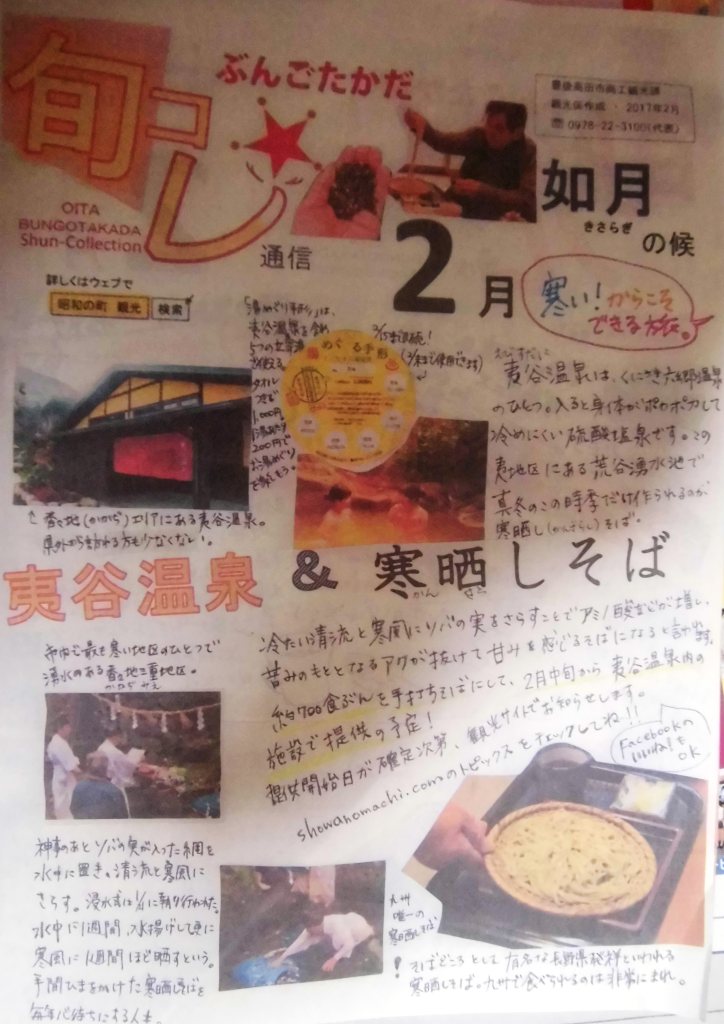 ぶんごたかだ
旬コレ
通信
OITA
BUNGOTAKADA
Shun-Collection
豊後高田市商工観光課
観光係作成 ・ 2017年2月
☎ 0978-22-3100(代表)
2月
如月
きさらぎ
の候
寒い!からこそ
できる旅。
詳しくはウェブで
昭和の町 観光 検索
「湯めぐり手形」は、
夷谷温泉を含め
5つの
タオル
つきで
1,000円
200円で
お湯めぐり
めぐる手形
夷谷温泉は、くにさき六郷温泉
のひとつ。入ると身体がポカポカして
冷めにくい硫酸塩泉です。この
夷地区にある荒谷湧水池で
真冬のこの時季だけ作られるのが
寒晒し(かんざらし)そば。
香々地(かかぢ)エリアにある夷谷温泉。
県外から訪れる方も少なくない。
夷谷温泉 & 寒晒しそば
市内で最も寒い地区のひとつで
湧水のある香々地三重地区。
冷たい清流と寒風にソバの実をさらすことでアミノ酸などが増し、
甘みのもととなるアクが抜けて甘みを感じるそばになると言われます。
約700食ぶんを手打ちそばにして、2月中旬から夷谷温泉内の
施設で提供の予定!
提供開始日が確定次第、観光サイトでお知らせします。
showanomachi.comのトピックスをチェックしてね!!
Facebookの
いいね!も
OK
神事のあとソバの実が入った網を
水中に置き、清流と寒風に
さらす。浸水式は
水中に1週間、水揚げして更に
寒風に1週間ほど晒すという。
手間ひまをかけた寒晒しそばを
毎年心待ちにする人も。
九州
唯一の
寒晒しそば
! そばどころとして有名な長野県発祥といわれる
寒晒しそば。九州で食べられるのは非常にまれ。